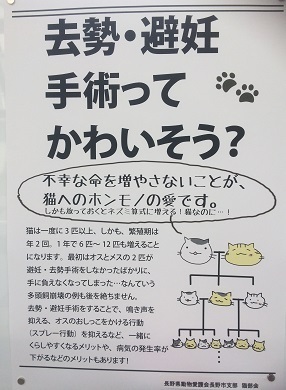 去勢・避妊
手術って
かわいそう?
不幸な命を増やさないことが、
猫へのホンモノの愛です。
しかも放っておくとネズミ算式に増える!猫なのに…!
猫は一度に3匹以上、しかも、繁殖期は
年2回。1年で6匹〜12匹も増えること
になります。最初はオスとメスの2匹が
避妊・去勢手術をしなかったばかりに、
手に負えなくなってしまった…なんていう
多頭飼崩壊の例も後を絶ちません。
去勢・避妊手術をすることで、鳴き声を
抑える、オスのおしっこをかける行動
(スプレー行動)を抑えるなど、一緒に
くらしやすくなるメリットや、病気の発生率が
下がるなどのメリットもあります!
長野県動物愛護会長野市支部 猫部会